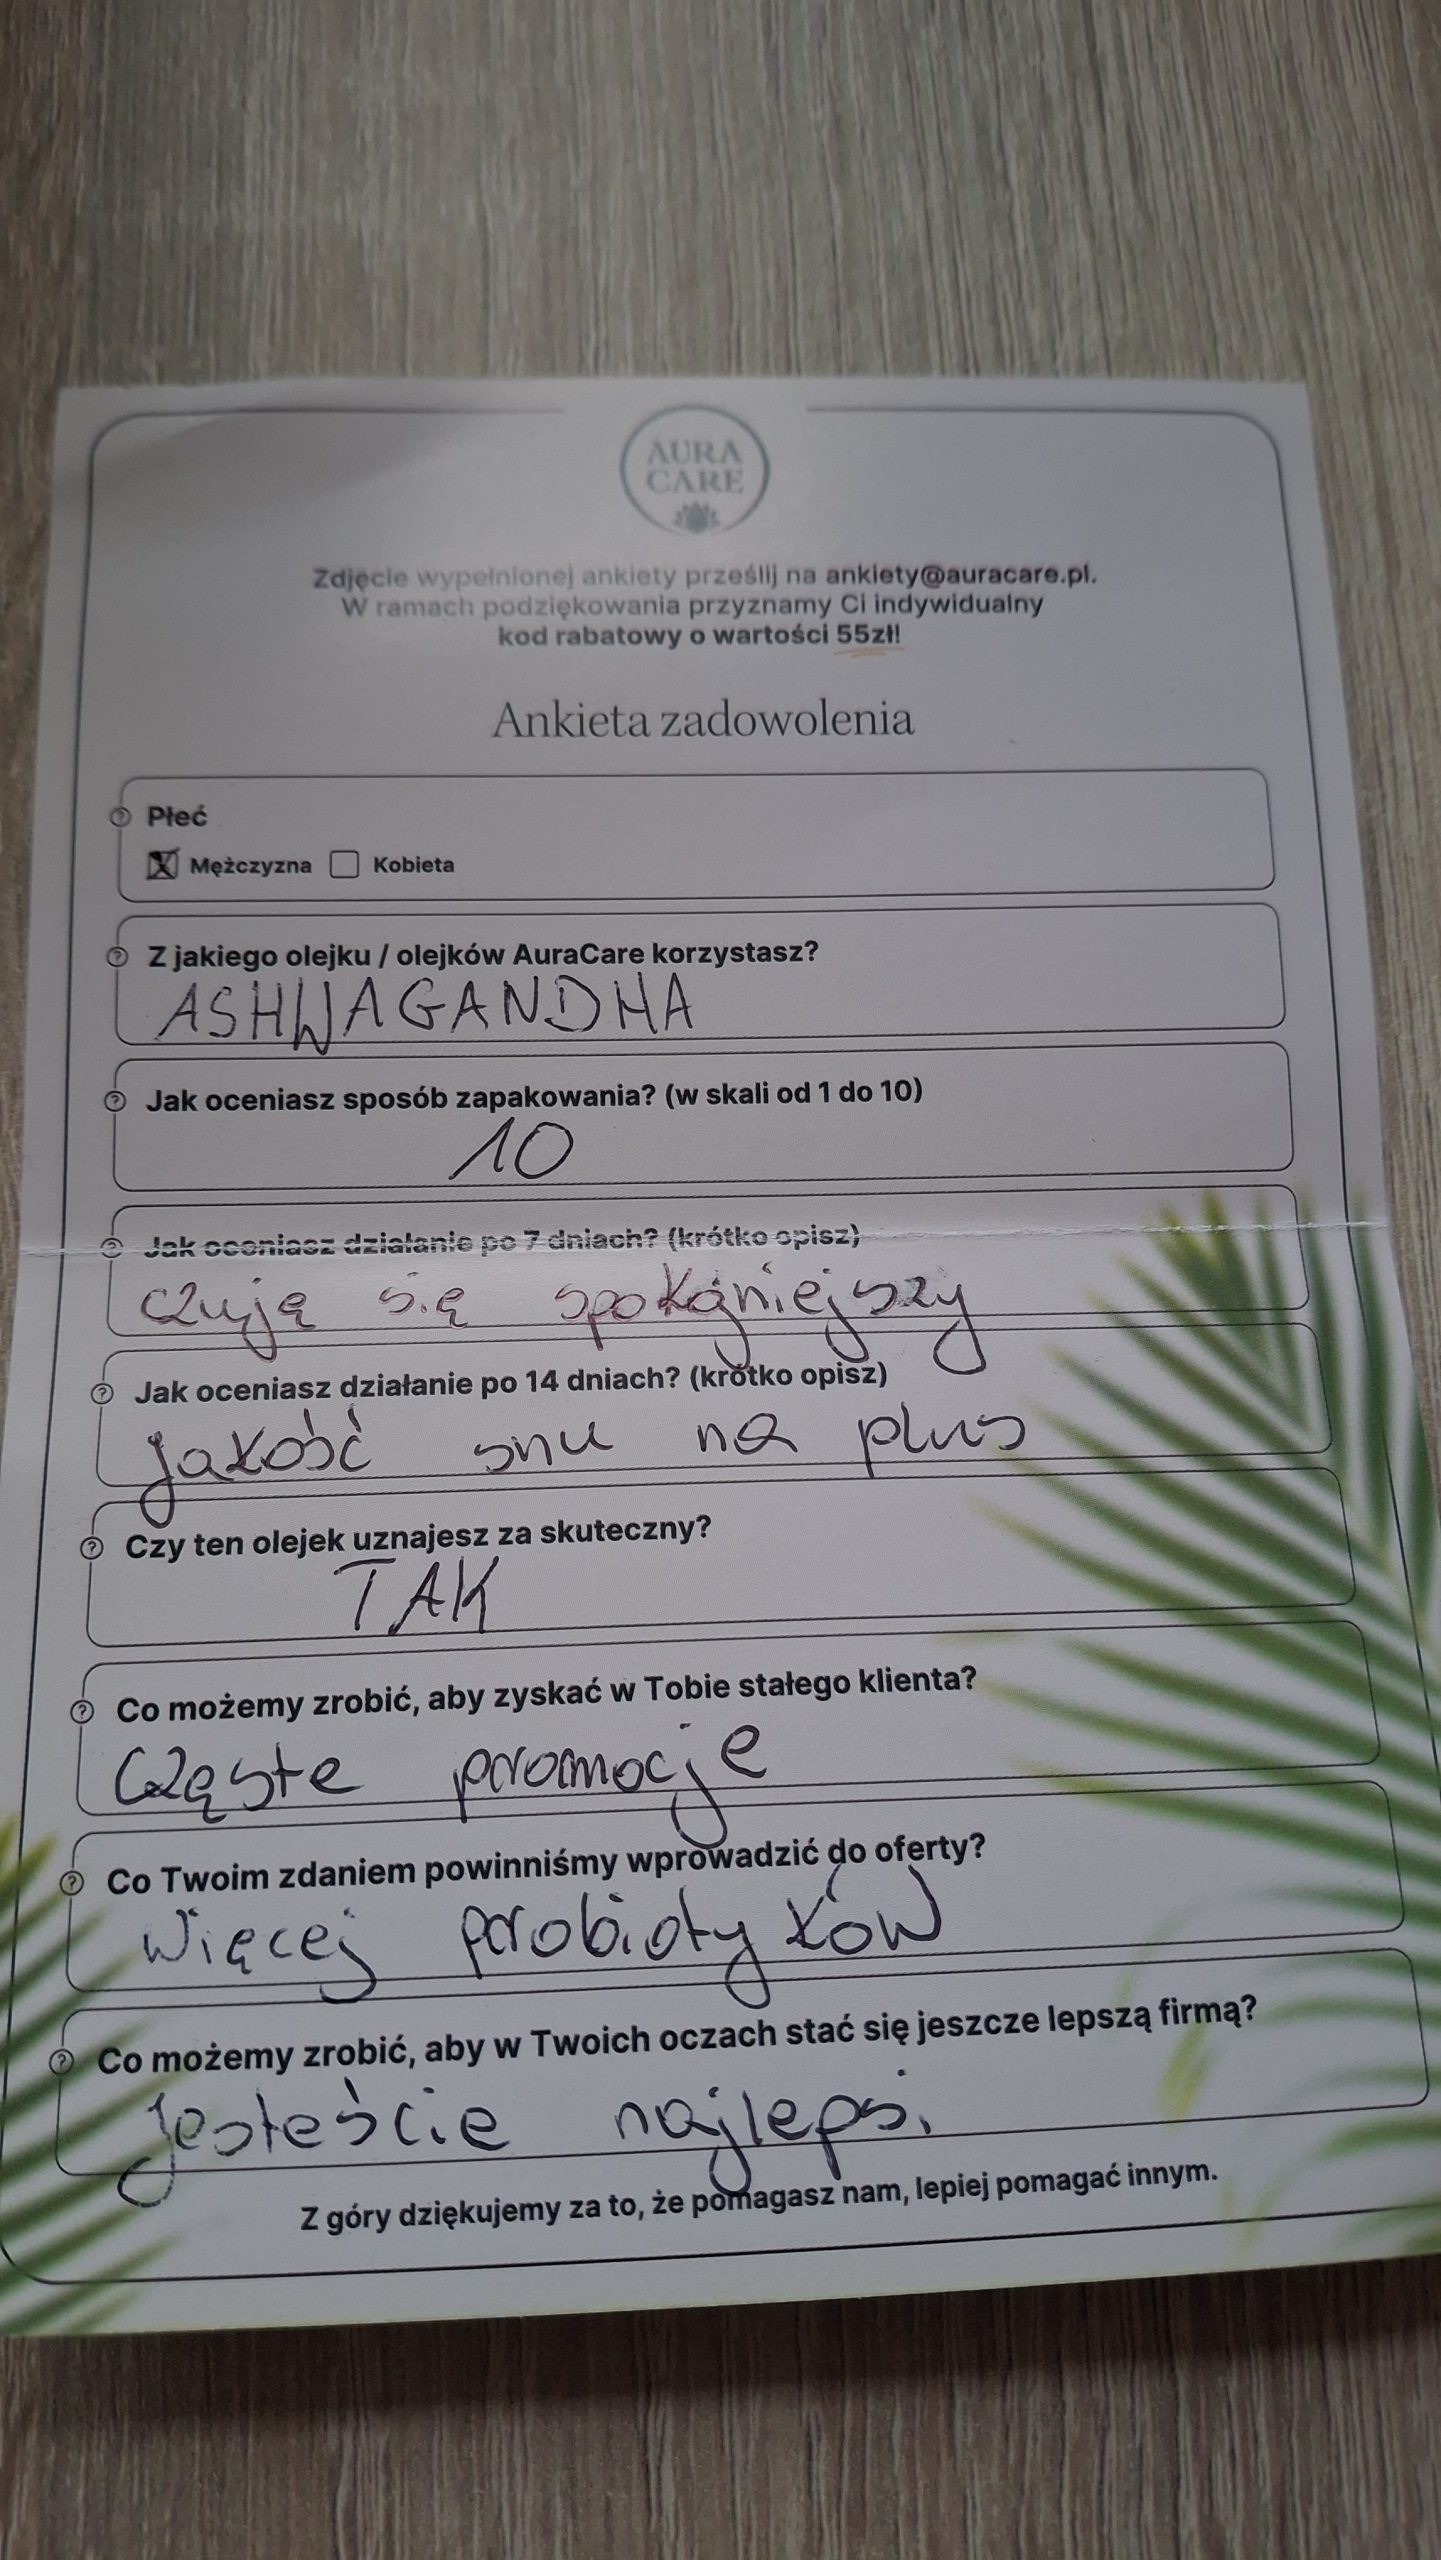 AURA
CARE
Zdjęcie wypełnionej ankiety prześlij na ankiety@auracare.pl.
W ramach podziękowania przyznamy Ci indywidualny
kod rabatowy o wartości 55zł!
Ankieta zadowolenia
Płeć
X Mężczyzna Kobieta
Z jakiego olejku / olejków AuraCare korzystasz?
ASHWAGANDHA
Jak oceniasz sposób zapakowania? (w skali od 1 do 10)
10
Jak oceniasz działanie po 7 dniach? (krótko opisz)
czuję się spokojniejszy
Jak oceniasz działanie po 14 dniach? (krótko opisz)
Jakość snu na plus
Czy ten olejek uznajesz za skuteczny?
TAK
Co możemy zrobić, aby zyskać w Tobie stałego klienta?
Częste promocje
Co Twoim zdaniem powinniśmy wprowadzić do oferty?
Więcej probiotyków
Co możemy zrobić, aby w Twoich oczach stać się jeszcze lepszą firmą?
Jesteście najlepsi
Z góry dziękujemy za to, że pomagasz nam, lepiej pomagać innym.